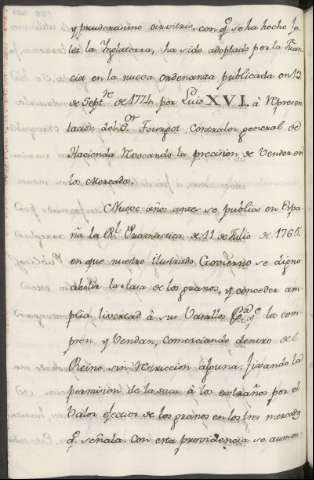 y prudentisimo arvitrio, con q.e se ha hecho fe
liz la Ynglaterra, ha sido adoptado por la Fran
cia en la nueva ordenanza publicada en 13
de Sept.re de 1774 por Luis XVI. à represen
tacion del S.or Tourgot Controlor general de
Hacienda revocando la precision de vender en
los Mercados.
Nueve años antes se publicó en Espa
ña la R.l Pracmatica de 11 de Julio de 1765.
en que nuestro ilustrado Govierno se dignó
abolir la tasa de los granos, y conceder am
plia livertad à sus Vasallos para q.e los com
pren y vendan, comerciando dentro de el
Reino sin restriccion alguna, fixando la
permision de la saca à los extraños por el
Valor efectivo de los granos en los tres mercados
q.e señala. Con esta providencia se aumen